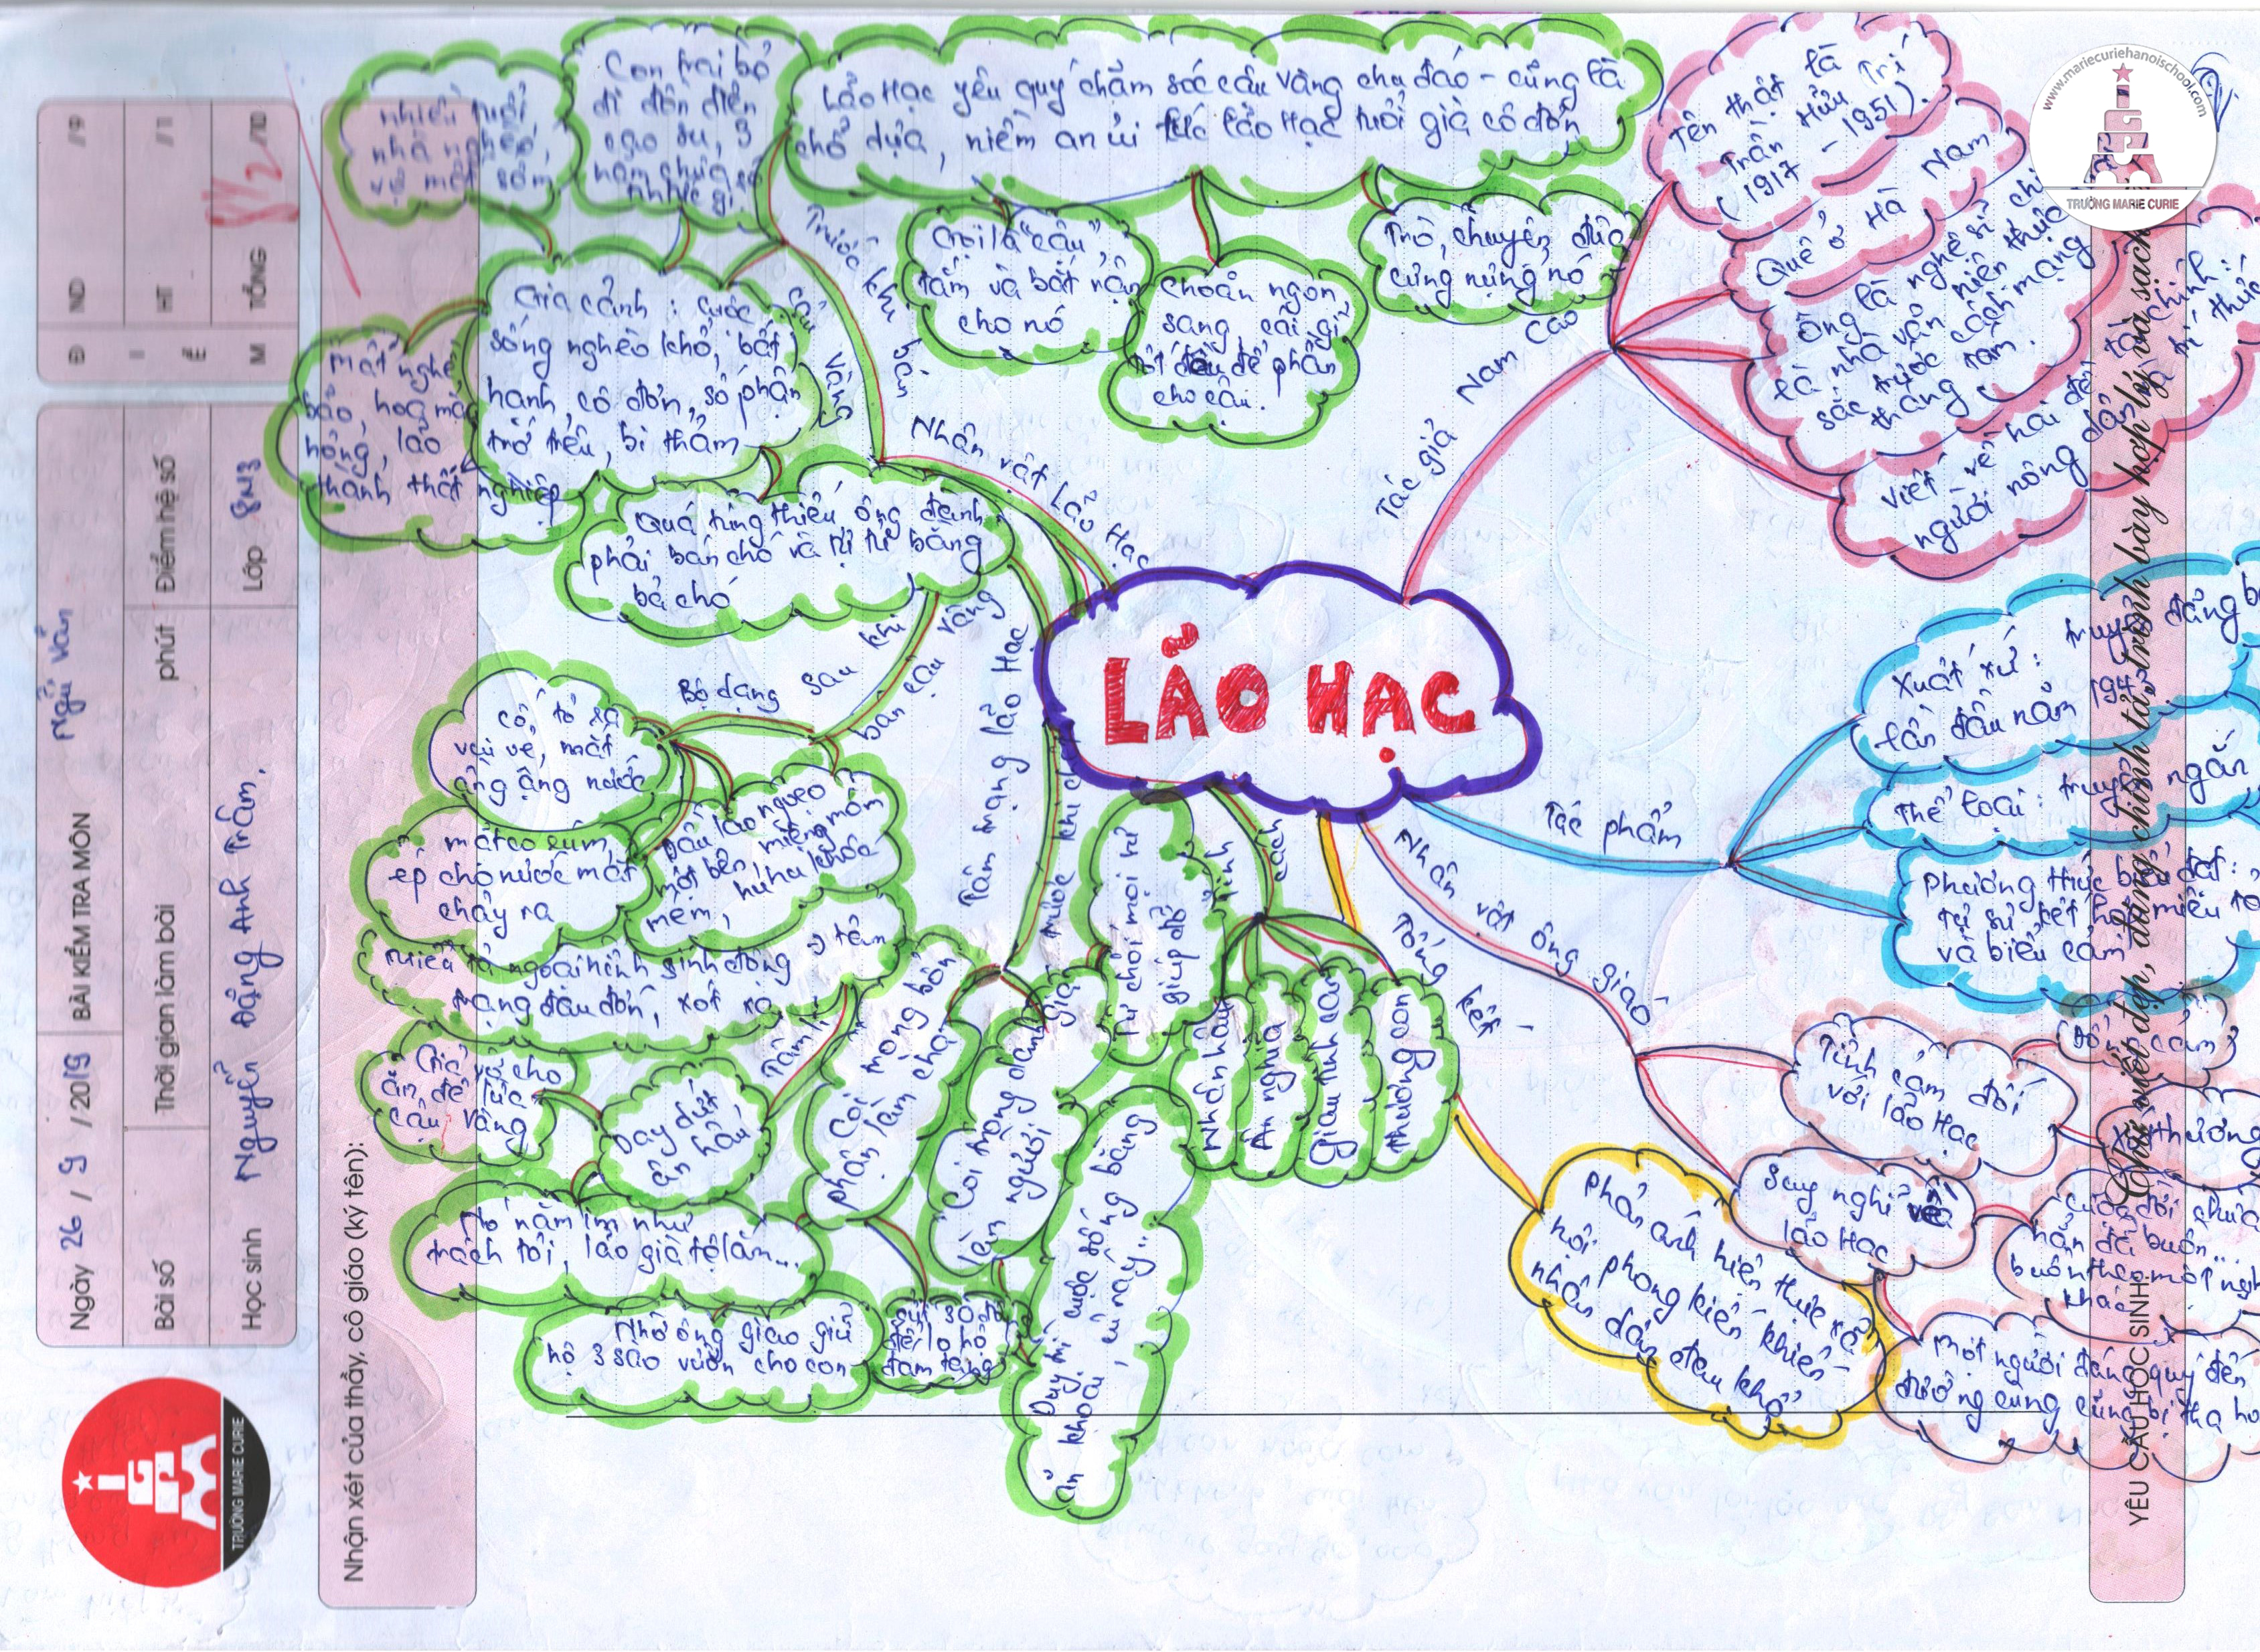 LÃO HẠC
Tác giả Nam Cao
Tên thật là
Trần Hữu Trí
(1917 - 1951).
Quê ở Hà Nam
Ông là nghệ sĩ chi
là nhà văn hiện thực
sắc trước cách mạng
tháng tám.
viết về hai đề tài chính:
người nông dân và trí thức
Tác phẩm
Xuất xứ: truyện đăng b
lần đầu năm 1943
Thể loại: truyện ngắn
Phương thức biểu đạt:
tự sự kết hợp miêu tả
và biểu cảm
Nhân vật ông giáo
Tình cảm đối
với lão Hạc
Đồng cảm
Xót thương
Suy nghĩ về
lão Hạc
Cuộc đời chưa
hẳn đã buồn...
buồn theo một ngh
khác
Một người đáng quý đến
đường cùng cũng bị tha ho
Tổng kết
phản ánh hiện thực xã
hội phong kiến khiến
nhân dân đau khổ
Nhân vật Lão Hạc
Trước khi bán
cậu vàng
Lão Hạc yêu quý chăm sóc cậu vàng chu đáo - cũng là
chỗ dựa, niềm an ủi lúc lão Hạc tuổi già cô đơn
Gọi là "cậu",
tắm và bắt rận
cho nó
Choắn ngon,
sang, cái gì
tốt đều để phần
cho cậu.
Trò chuyện đùa
cưng nựng nó
Gia cảnh: Cuộc
sống nghèo khổ, bất
hạnh, cô đơn, số phận
trớ trêu, bi thảm
nhiều tuổi
nhà nghèo,
vợ mất sớm,
Con trai bỏ
đi đồn điền
cao su, 3
năm chưa có
nhức gì.
Mất nghề
bão, hoa màu
hỏng, lão
thành thất nghiệp
Quá túng thiếu ông đành
phải bán chó và tự tử bằng
bả chó
Bộ dạng sau khi
bán cậu vàng
cố tỏ ra
vui vẻ, mắt
ầng ậng nước
mặt co rúm,
ép cho nước mắt
chảy ra
Đầu lão ngoẹo
một bên, miệng móm
mém, hu hu khóc
Miêu tả ngoại hình sinh động → tâm
trạng đau đớn, xót xa
Day dứt
ân hận
Già vờ cho
ăn để lừa
cậu Vàng
Nó nằm im như
trách tôi, lão già tệ lắm...
Tâm trạng lão Hạc trước khi
Coi trọng bổn
phận làm cha
Nhờ ông giáo giữ
hộ 3 sào vườn cho con
để lo hộ
đám tang
Coi trọng danh giá
làm người
Duy trì cuộc sống bằng
ăn khoai, củ ráy...
Từ chối mọi sự
giúp đỡ
Tính cách
Nhân hậu
Ân nghĩa
Giàu tình cảm
thương con
Ngày 26 / 9 / 2019 BÀI KIỂM TRA MÔN Ngữ văn
Bài số Thời gian làm bài phút Điểm hệ số
Học sinh Nguyễn Đặng Anh Trâm. Lớp 8M3
Đ ND /9
I HT /1
Ể
M TỔNG 8 1/2 /10
Nhận xét của thầy, cô giáo (ký tên):
YÊU CẦU HỌC SINH: Chữ viết đẹp, đúng chính tả, trình bày hợp lý và sạch
TRƯỜNG MARIE CURIE
www.mariecuriehanoischool.com
TRƯỜNG MARIE CURIE